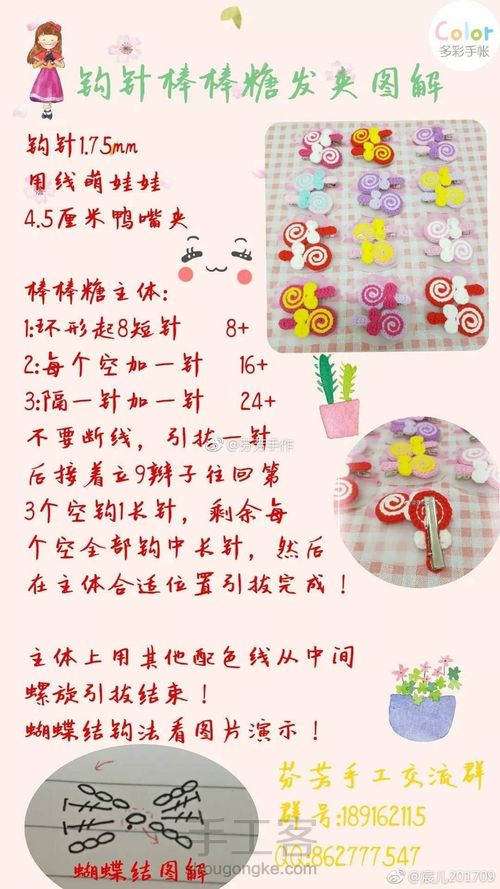 Color
多彩手帐
钩针棒棒糖发夹图解
钩针1.75mm
用线萌娃娃
4.5厘米鸭嘴夹
棒棒糖主体:
1:环形起8短针 8+
2:每个空加一针 16+
3:隔一针加一针 24+
不要断线，引拔一针
@芬芳手作
后接着立9辫子往回第
3个空钩1长针，剩余每
个空全部钩中长针，然后
在主体合适位置引拔完成！
主体上用其他配色线从中间
螺旋引拔结束！
蝴蝶结钩法看图片演示！
芬芳手工交流群
群号:189162115
QQ:862777547
蝴蝶结图解
手工客
@宸儿201709